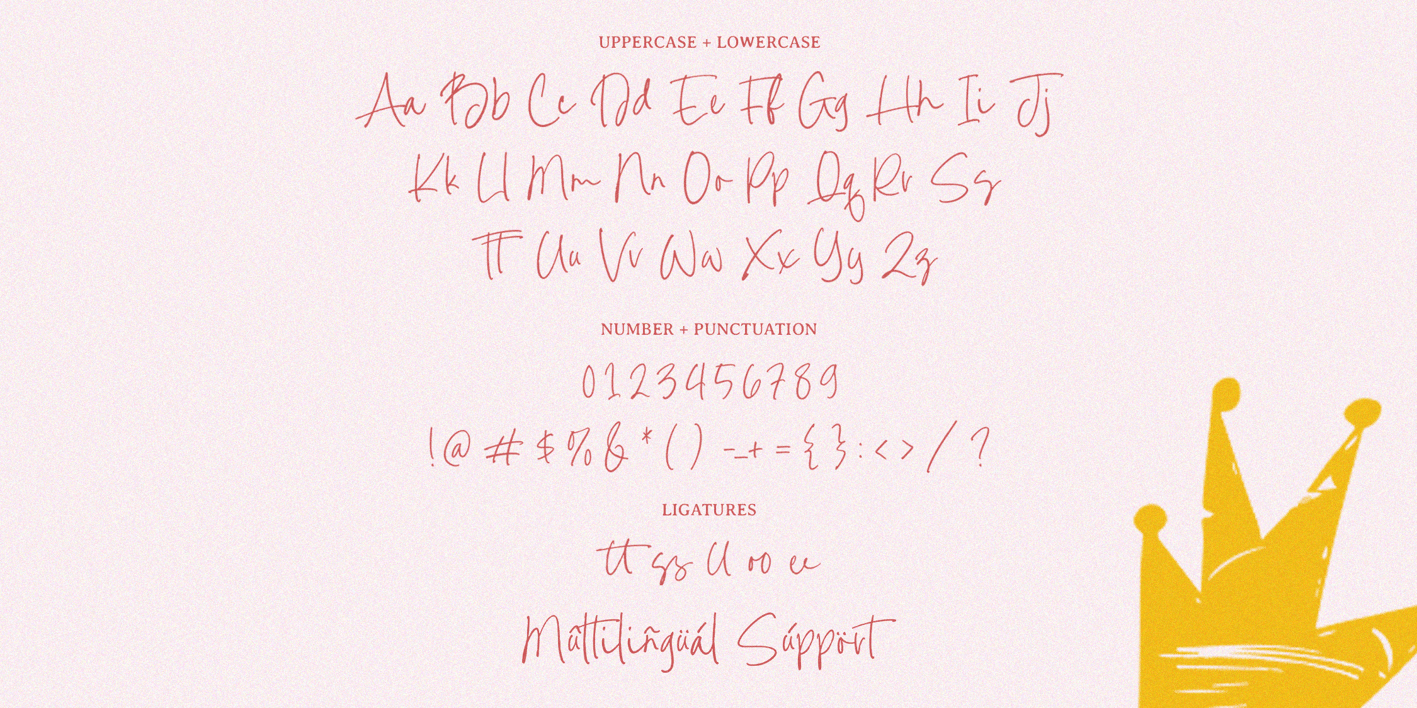 UPPERCASE + LOWERCASE
Aa Bb Cc Dd Ee Ff Gg Hh Ii Jj
Kk Ll Mm Nn Oo Pp Qq Rr Ss
Tt Uu Vv Ww Xx Yy Zz
NUMBER + PUNCTUATION
0123456789
!@#$%&*() -_+={}:<>/?
LIGATURES
tt ss ll oo ee
Mûltiliñgüál Súppört